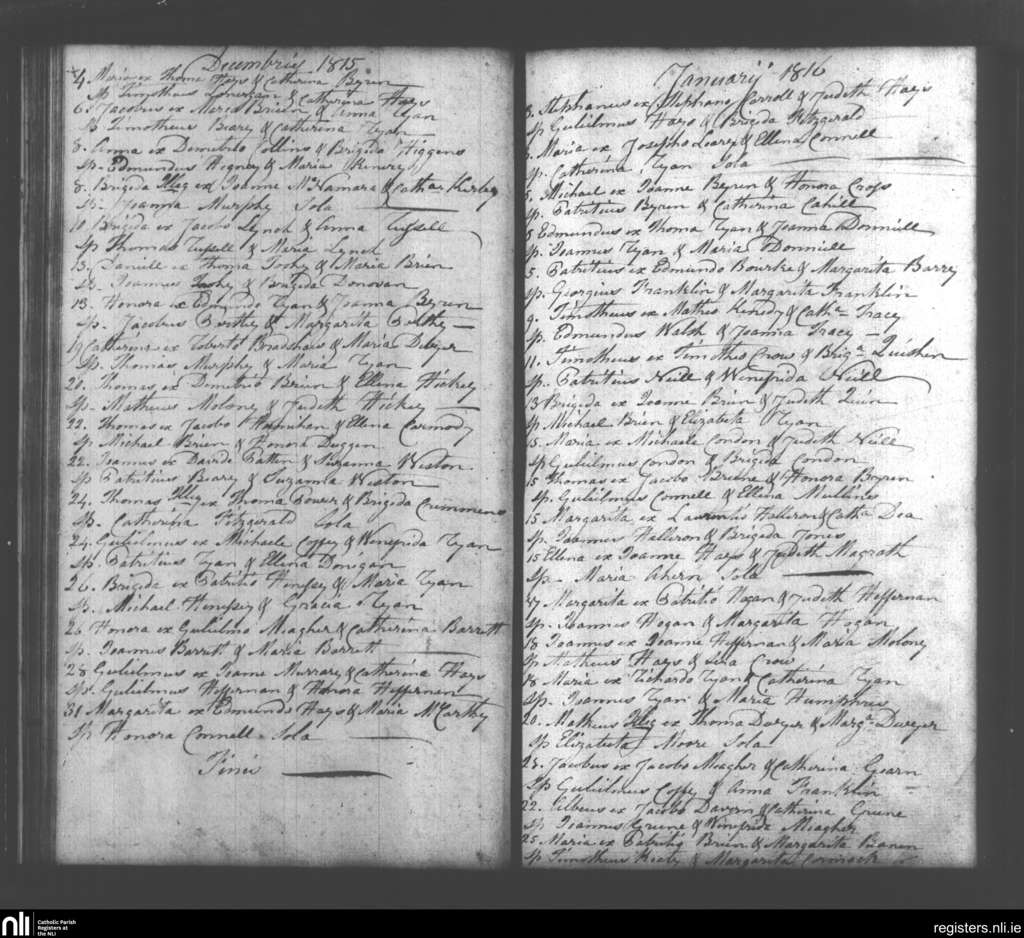 Decembris 1815
4 Maria ex Thoma Hays & Catherina Byren
Sp Timotheus Lonergan & Catherina Hays
6. Jacobus ex Brien & Anna Ryan
Sp Timotheus Beary & Catherina Ryan
8. Anna ex Demetrio Collins & Brigida Higgens
Sp. Edmundus Hogney & Maria
8. Brigida Illeg ex Joanne McNamara & Cathar Kerley
Sp. Joanna Murphy Sola
10 Brigida ex Jacobo Lynch & Anna Russell
Sp Thomas Russell & Maria Lynch
13. Daniell ex Thoma & Maria Brien
Sp. Joannus & Brigida Donovan
13. Honora ex Edmundo Ryan & Joanna Byren
Sp. Jacobus & Margarita
19 Catherina ex Roberto Bradshaw & Maria Dwyer
Sp. Thomas Murphy & Maria Ryan
20. Thomas ex Demetrio Brien & Ellena Hickey
Sp. Matheus Molony & Judeth Hickey
22. Thomas ex Jacobo Hourihan & Ellena Carmody
Sp Michael Brien & Honora Duggan
22. Joannus ex Davide Patten & Suzanna Weston
Sp Patritius Beary & Suzanna Weston
24. Thomas Illeg ex Thoma Power & Brigida Crimmens
Sp. Catherina Fitzgerald Sola
24. Gulielmus ex Michaele Coffey & Winefrida Ryan
Sp. Patritius Ryan & Ellena Donigan
26. Brigida ex Patritio Hempsy & Maria Ryan
Sp. Michael Hempsy & Gracia Ryan
26 Honora ex Gulielmo Meagher & Catherina Barrett
Sp. Joannus Barrett & Maria Barrett
28 Gulielmus ex Joanne Murrary & Catherina Hays
Sp. Gulielmus Heffernan & Honora Heffernan
31 Margarita ex Edmundo Hays & Maria McCarthy
Sp Honora Connell Sola
Finis
January 1816
Stephanus ex Stephano Carroll & Judeth Hays
Sp Gulielmus Hays & Brigida Fitzgerald
Maria ex Josepho Leary & Ellena Connell
Sp. Catherina Ryan Sola
5. Michael ex Joanne Byren & Honora Cross
Sp. Patritius Byren & Catherina Cahill
5 Edmundus ex Thoma Ryan & Joanna Donniell
Sp. Joannus Ryan & Maria Donniell
5. Patritius ex Edmundo Bourke & Margarita Barry
Sp. Georgius Franklin & Margarita Franklin
9. Timotheus ex Matheo Kenedy & Catha Tracy
Sp. Edmundus Walsh & Joanna Tracy
11. Timotheus ex Timotheo Crow & Briga Quishin
Sp. Patritius Neill & Winefrida Neill
13 Brigida ex Joanne Brien & Judeth Quin
Sp Michael Brien & Elizabeta Ryan
15. Maria ex Michaele Condon & Judeth Neill
Sp Gulielmus Condon & Brigida Condon
15 Thomas ex Jacobo & Honora Byren
Sp. Gulielmus Connell & Ellena Mullins
15 Margarita ex Laurentio Halleron & Catha Dea
Sp. Joannus Halleron & Brigida Jones
15 Ellena ex Joanne Hays & Judeth Magrath
Sp. Maria Ahern Sola
17 Margarita ex Patritio Hogan & Judeth Heffernan
Sp. Joannus Hogan & Margarita Hogan
18 Joannus ex Joanne Heffernan & Maria Molony
Sp Matheus Hays & Crow
18 Maria ex Richardo Ryan & Catherina Ryan
Sp. Joannus Ryan & Maria Humphrus
20. Matheus Illeg ex Thoma Dwyer & Marga Dwyer
Sp Elizabeta Moore Sola
23. Jacobus ex Jacobo Meagher & Catherina Gearn
Sp Gulielmus Coffey & Anna Franklin
22. Albeus ex Jacobo Davern & Catherina Greene
Sp Joannus Greene & Winefrida Meagher
25 Maria ex Patritio Brien & Margarita
Sp Timotheus Kiely & Margarita
nli Catholic Parish
Registers at
the NLI
registers.nli.ie